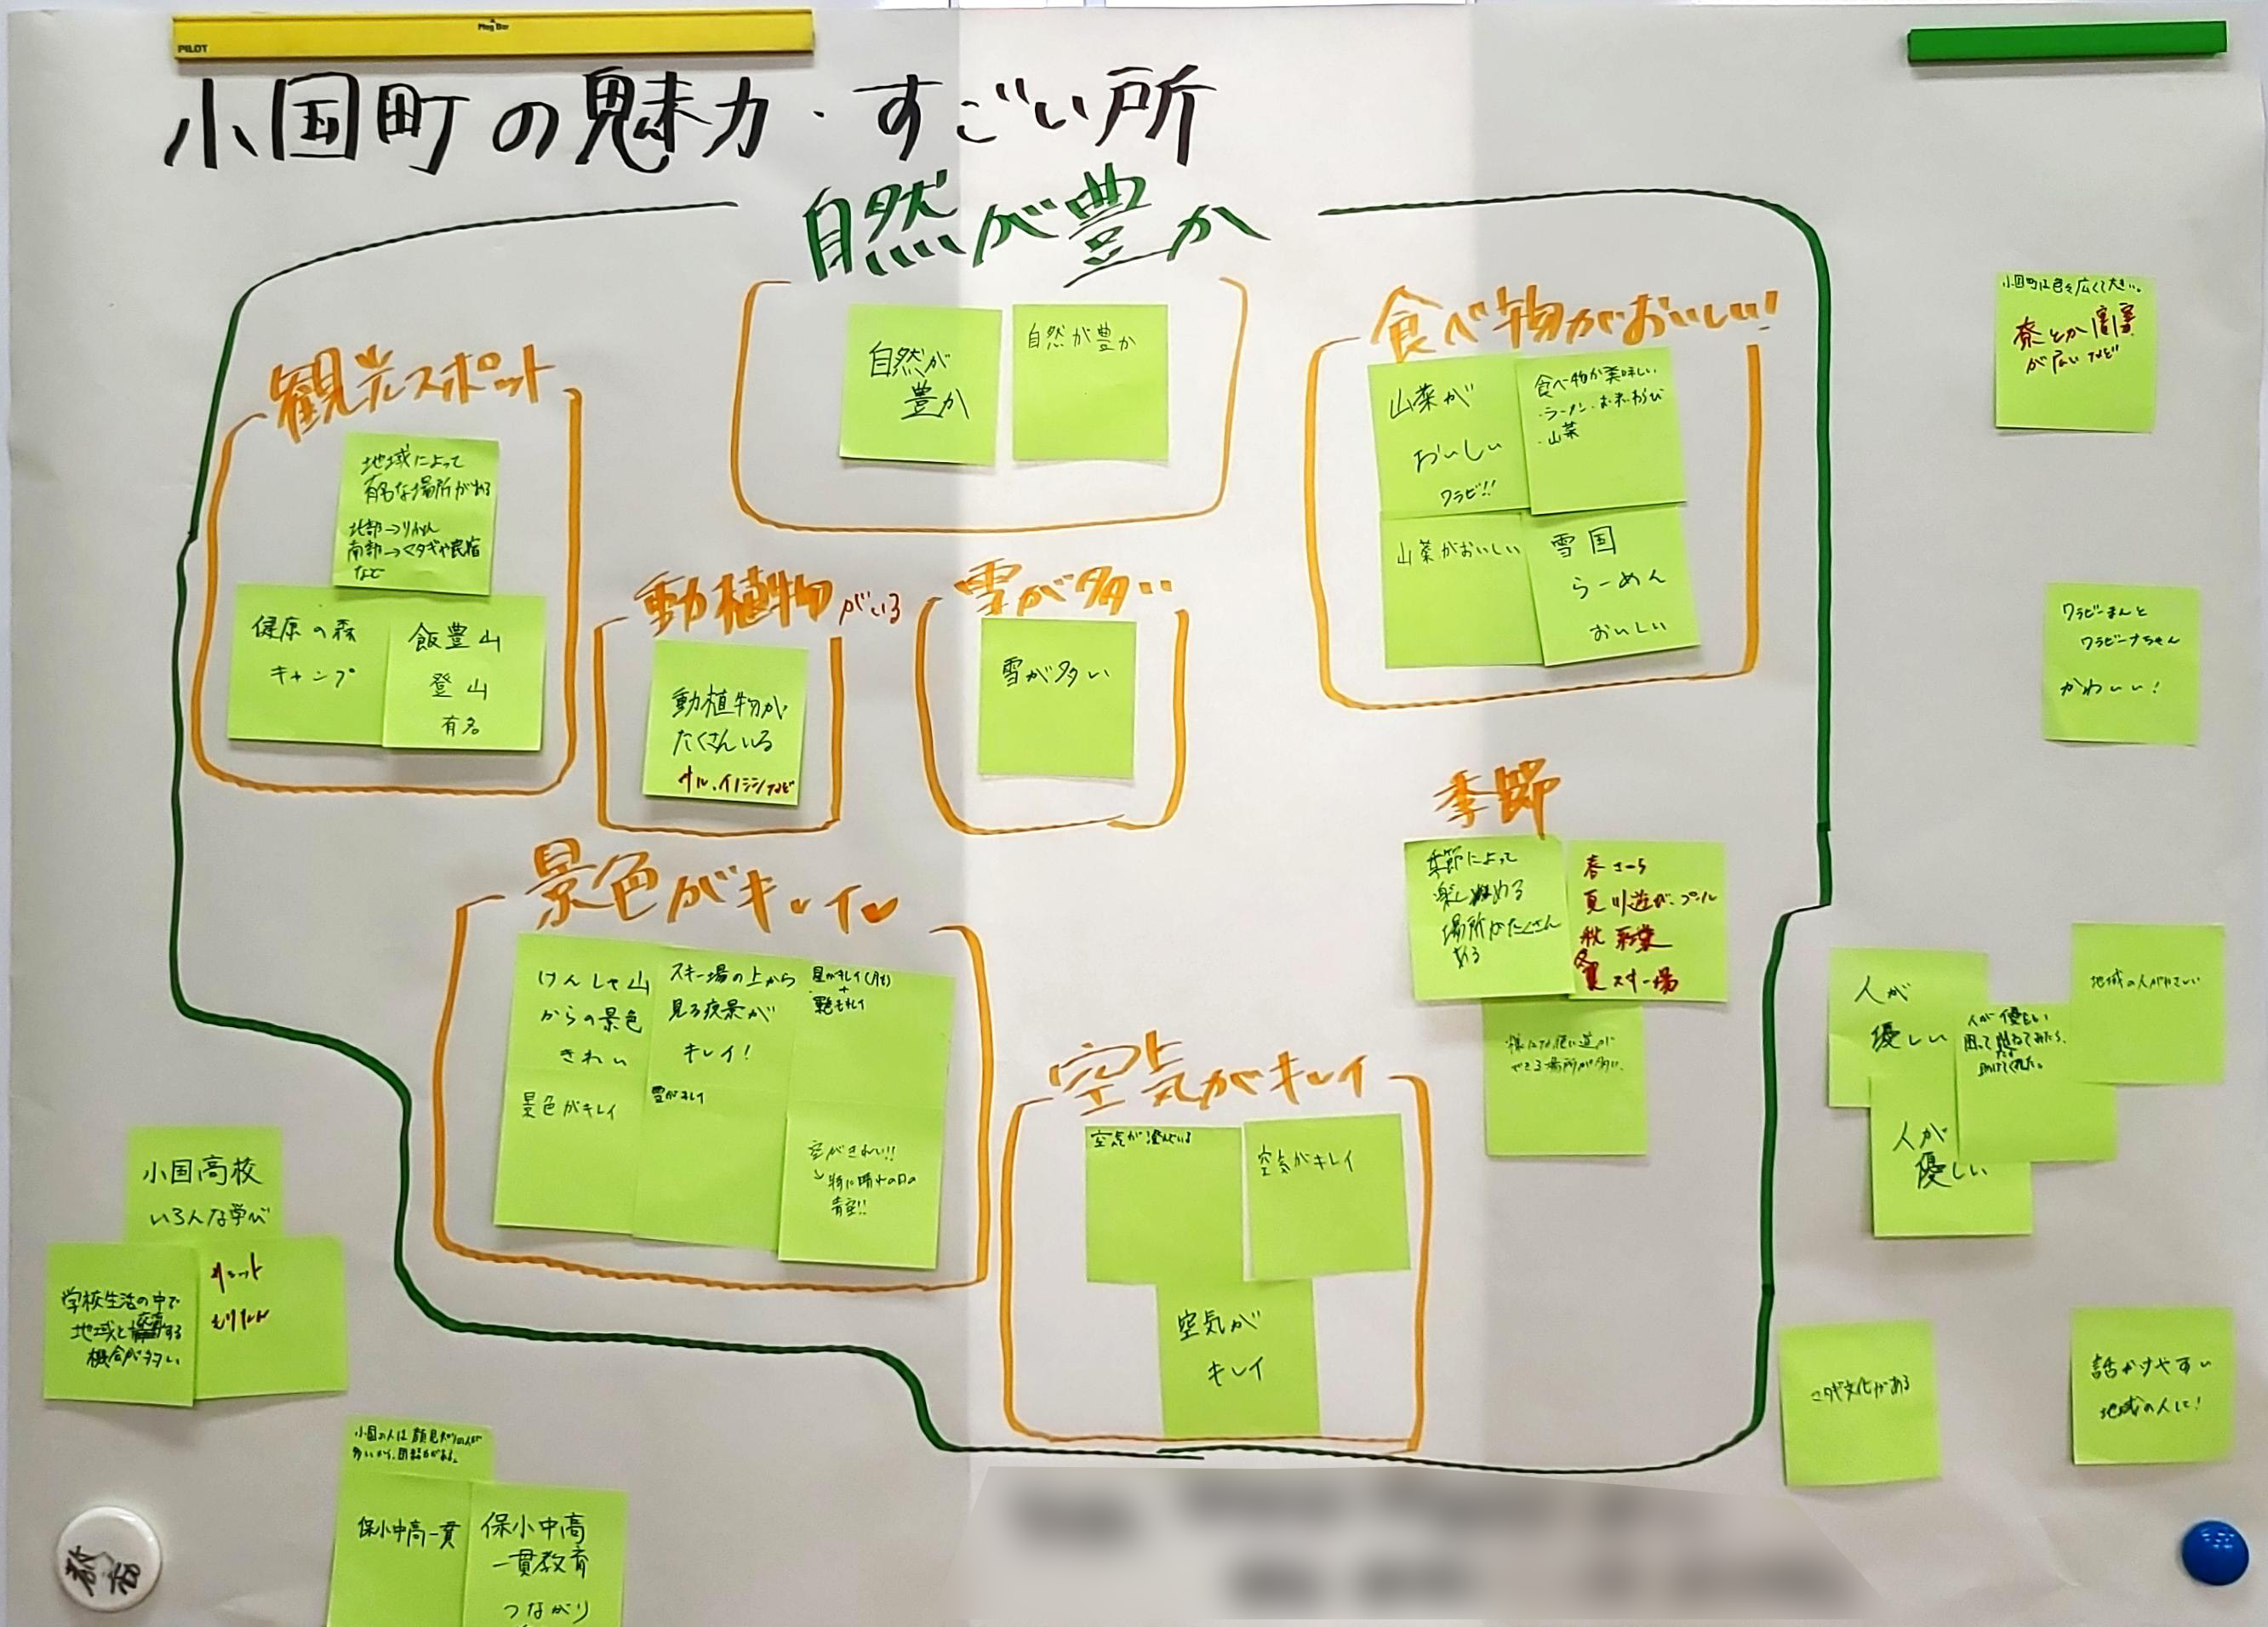 PILOT
Mag Bar
小国町の魅力・すごい所
自然が豊か
自然が
豊か
自然が豊か
食べ物がおいしい!
山菜が
おいしい
ワラビ!!
食べ物が美味しい
・ラーメン・お米・わらび
・山菜
山菜がおいしい
雪国
らーめん
おいしい
観光スポット
地域によって
有名な場所がある
北部→りかちん
南部→マタギや民宿
など
健康の森
キャンプ
飯豊山
登山
有名
動植物がいる
動植物が
たくさんいる
サル、イノシシなど
雪が多い
雪が多い
季節
季節によって
楽しめる
場所がたくさん
ある
春 さくら
夏 川遊び、プール
秋 紅葉
冬 スキー場
様々な使い道が
できる場所が多い。
景色がキレイ
けんしゃ山
からの景色
きれい
スキー場の上から
見る夜景が
キレイ!
星がキレイ(月も)
+
景色がキレイ
雪がキレイ
空がきれい!!
→特に晴れの日の
青空!!
空気がキレイ
空気が澄んでいる
空気がキレイ
空気が
キレイ
が広いなど
ワラビーまんと
ワラビーナちゃん
かわいい!
人が
優しい
人が優しい
困って尋ねてみたら、
助けてくれた。
地域の人がやさしい
人が
優しい
マタギ文化がある
話かけやすい
地域の人に!
小国高校
いろんな学び
学校生活の中で
機会が多い
小国の人は顔見知りの人が
多いから、団結力がある。
保小中高一貫
保小中高
一貫教育
つながり